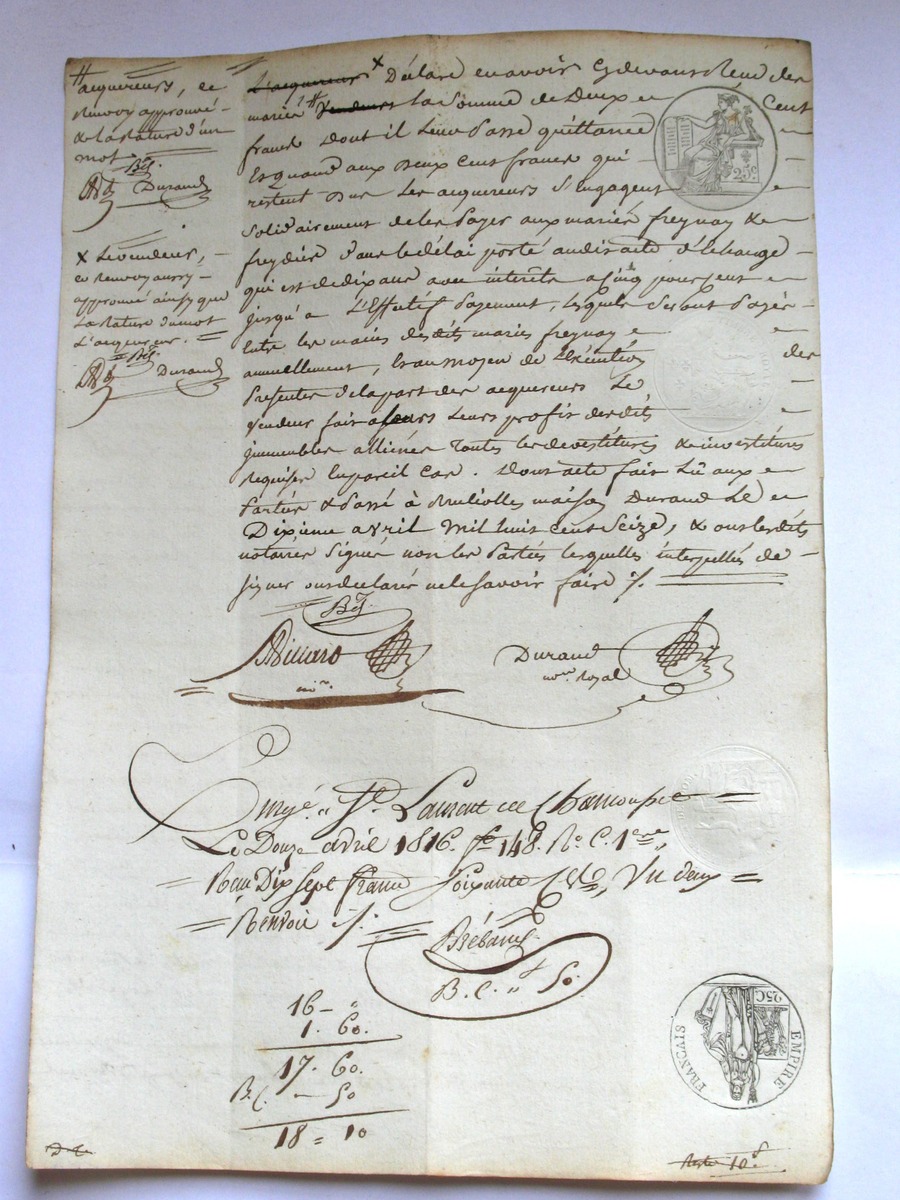 acquereurs, ce
renvoy approuvé
& la rature d'un
mot.
Durand
x Le vendeur,
ce renvoy aussy
approuvé ainsy que
la rature du mot
L'acquereur.
Durand
L'acquereur x Déclare en avoir cy devant Reçu des
mariés # vendeurs la somme de Deux cent
francs dont il leur Passe quittance
Et quand aux Deux cent francs qui
restent dus Les acquereurs S'engagent
Solidairement de les Payer aux mariés freynay &
freydier dans le délai porté audit acte d'échange
qui est de dix ans avec interêts a Cinq pour cent
jusqu'a L'Effectif Payement, lesquels seront Payés
entre les mains desdits mariés freynay
annuellement, & au moyen de l'Exécution des
Présentes de la part des acquereurs Le
vendeur fait a leurs profit desdits
immeubles alliénés Toutes les devestitures & investitures
requises en pareil cas. Dont acte fait Lû aux
Parties & Passé à maison Durand Le
Dixieme avril Mil huit cent Seize, & ont lesdits
notaires Signés non les Parties lesquelles interpellés de
signer ont déclaré ne le savoir faire ./.
Durand
no.re Royal
DROIT
25c
Enrgé. à St. Laurent de Chamousset
Le Douze avril 1816. fo. 148. Ro. C. 1ere
Reçu Dix Sept francs Soixante Ces, Vu deux
Renvois ./.
B. C. " 50
16 - "
1. 60.
17. 60.
B.C. - 50
18 = 10
EMPIRE
FRANÇAIS
25C
Reste 10 s